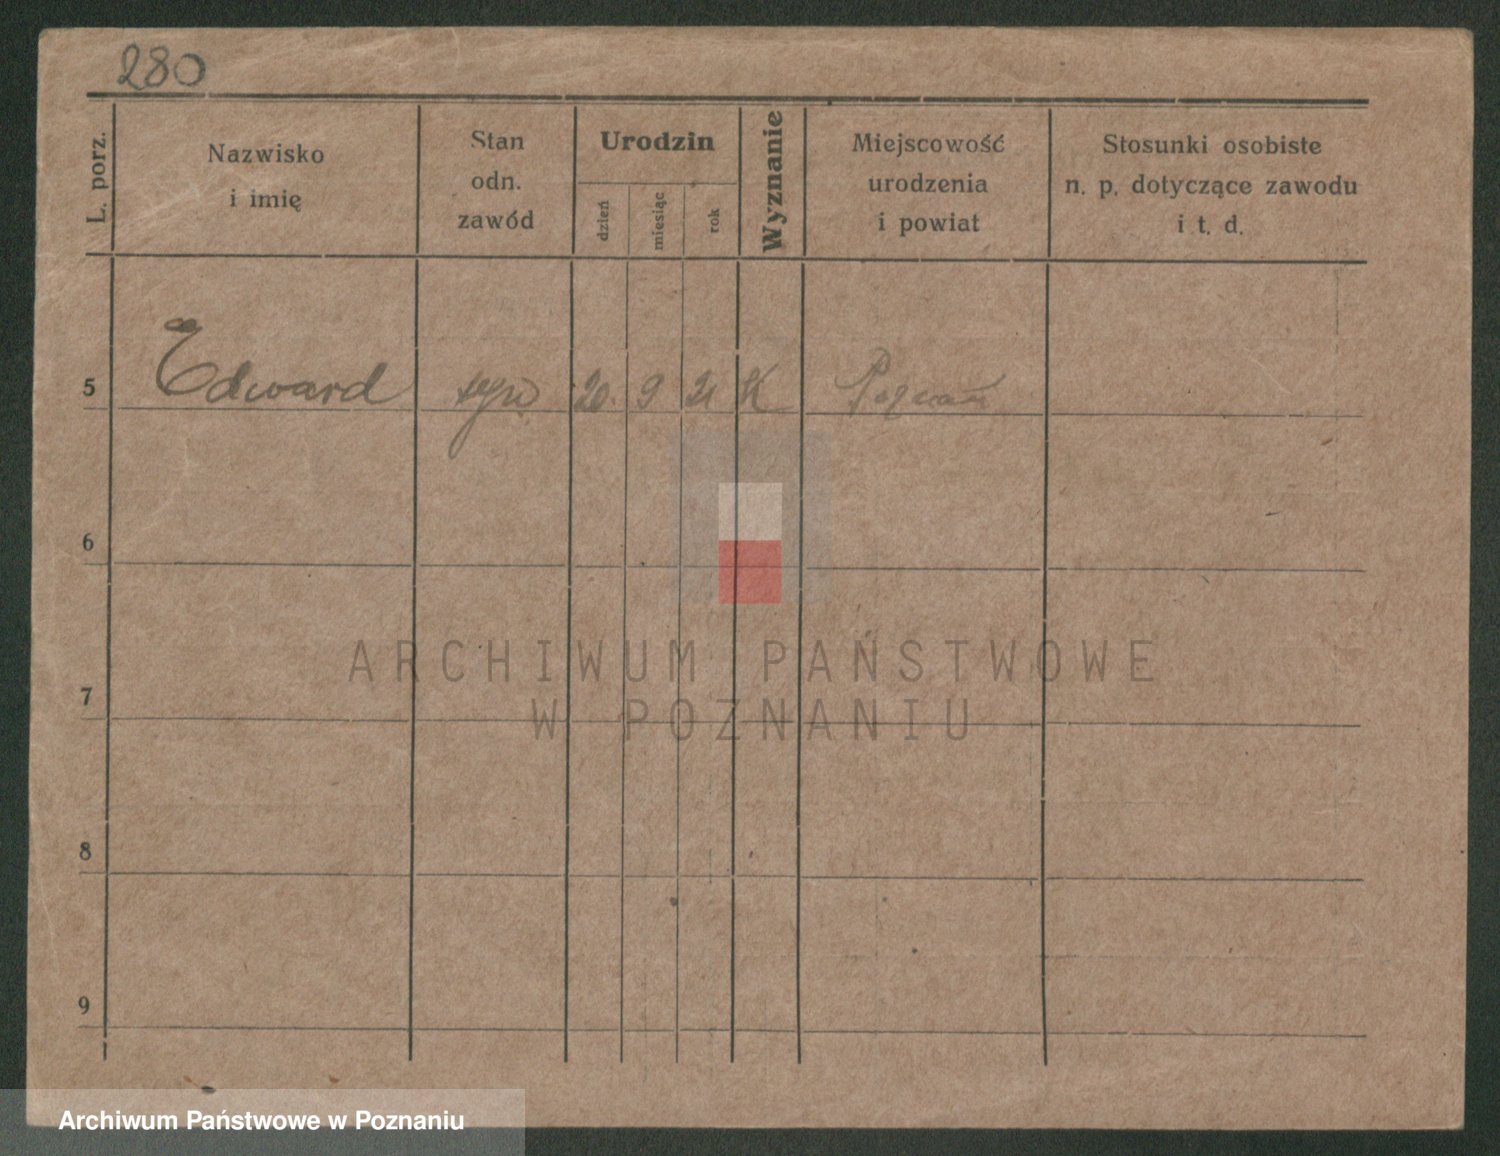 280
L. porz.
Nazwisko
i imię
Stan
odn.
zawód
Urodzin
dzień
miesiąc
rok
Wyznanie
Miejscowość
urodzenia
i powiat
Stosunki osobiste
n. p. dotyczące zawodu
i t. d.
5 Edward syn 20. 9 21 K Poznań
6
7
8
9
ARCHIWUM PAŃSTWOWE
W POZNANIU
Archiwum Państwowe w Poznaniu